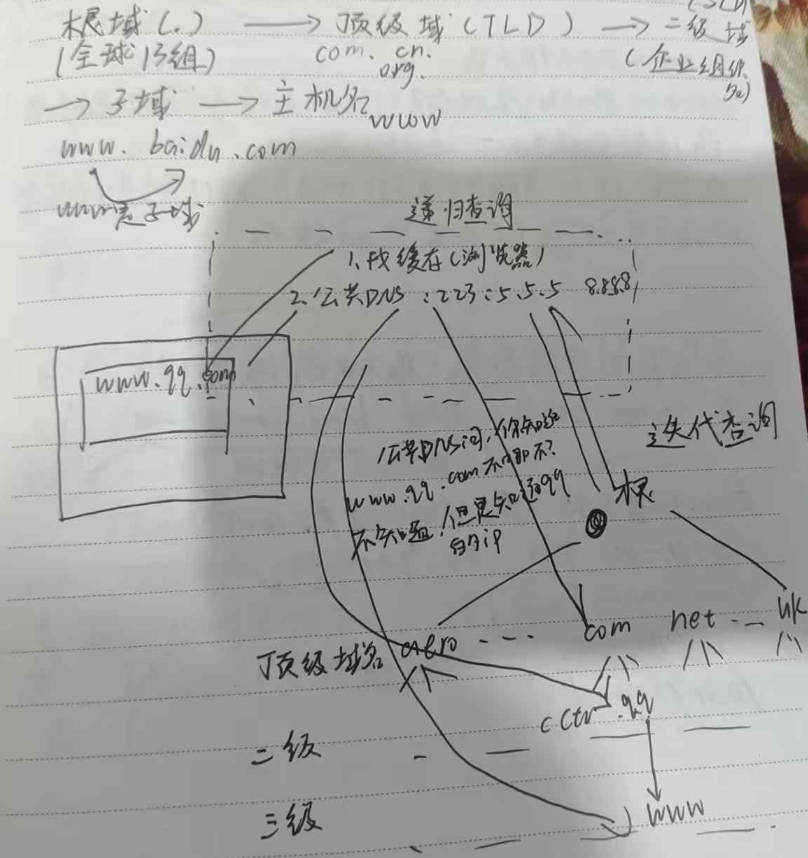 根域(.) → 顶级域(TLD) → 二级域
(全球13组) com. cn. org. (企业组织
→ 子域 → 主机名 www
www.baidu.com
www是子域
递归查询
1.找缓存(浏览器)
2.公共DNS:223.5.5.5 8.8.8.8
www.qq.com
公共DNS问,你知道
www.qq.com 不
不知道,但是知道qq
的ip
迭代查询
根
顶级域名 aero ... com net ... uk
cctv .qq
二级
三级 www